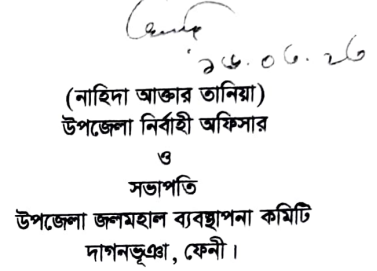 (নাহিদা আক্তার তানিয়া)
উপজেলা নির্বাহী অফিসার
ও
সভাপতি
উপজেলা জলমহাল ব্যবস্থাপনা কমিটি
দাগনভূঞা, ফেনী।